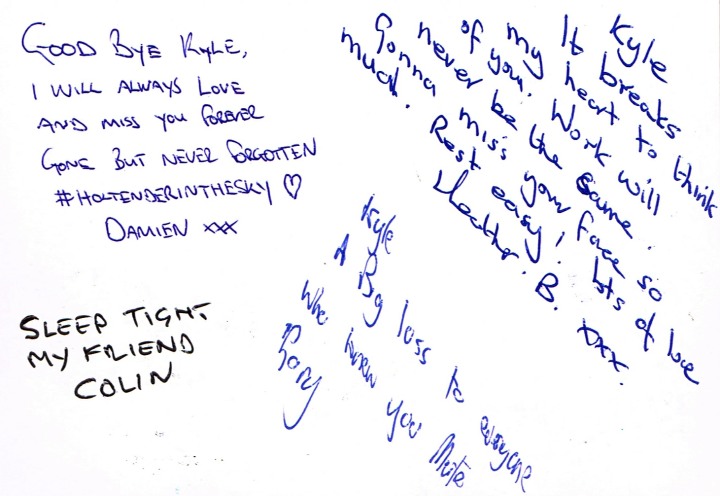 GOOD BYE KYLE,
I WILL ALWAYS LOVE
AND MISS YOU FOREVER
GONE BUT NEVER FORGOTTEN
#HOLTENDERINTHESKY ♡
DAMIEN xxx
Kyle
It breaks
my heart to think
of you. Work will
never be the same.
Gonna miss your face so
much.
Rest easy! Lots of love
Heather. B. xxx.
SLEEP TIGHT
MY FRIEND
COLIN
Kyle
A Big loss to everyone
Who knew you Mate
Rory